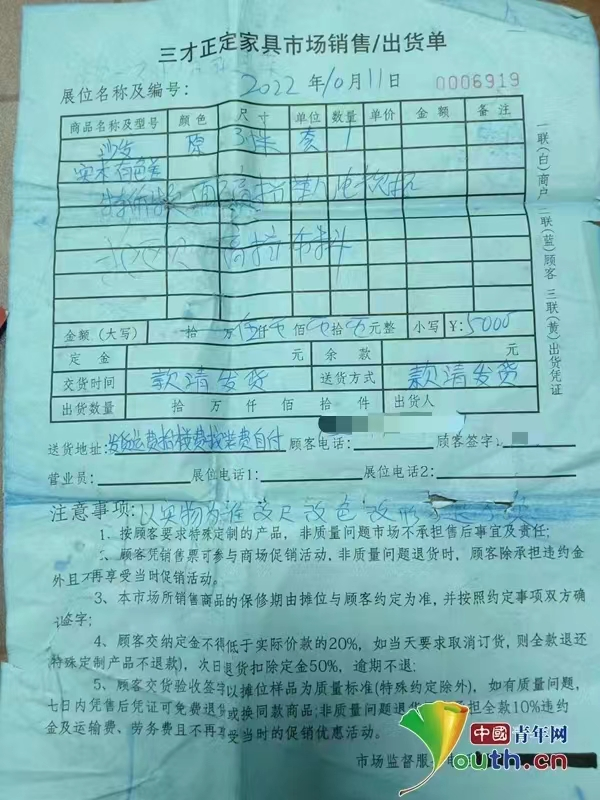 三才正定家具市场销售/出货单
展位名称及编号： 2022 年 10 月 11 日 0006919
商品名称及型号 颜色 尺寸 单位 数量 单价 金额 备注
沙发 原 套 1
高 布料
金额（大写） 拾 万 伍仟 佰 拾 元整 小写 ¥：5000
定金 元 余款 元
交货时间 款清发货 送货方式 款清发货
出货数量 拾 万 仟 佰 拾 件 出货人
送货地址： 费自付 顾客电话： 顾客签字：
营业员： 展位电话1： 展位电话2：
注意事项： 以实物为准 改尺 改色 改形
1、按顾客要求特殊定制的产品，非质量问题市场不承担售后事宜及责任；
、顾客凭销售票可参与商场促销活动，非质量问题退货时，顾客除承担违约金
外且不再享受当时促销活动。
3、本市场所销售商品的保修期由摊位与顾客约定为准，并按照约定事项双方确
认签字；
4、顾客交纳定金不得低于实际价款的20%，如当天要求取消订货，则全款退还
（特殊定制产品不退款），次日退货扣除定金50%，逾期不退；
5、顾客交货验收签字以摊位样品为质量标准（特殊约定除外），如有质量问题，
七日内凭售后凭证可免费退货或换同款商品；非质量问题退货 担全款10%违约
金及运输费、劳务费且不再享受当时的促销优惠活动。
市场监督服 电
一联（白）商户 二联（蓝）顾客 三联（黄）出货凭证
中國青年网
Youth.cn